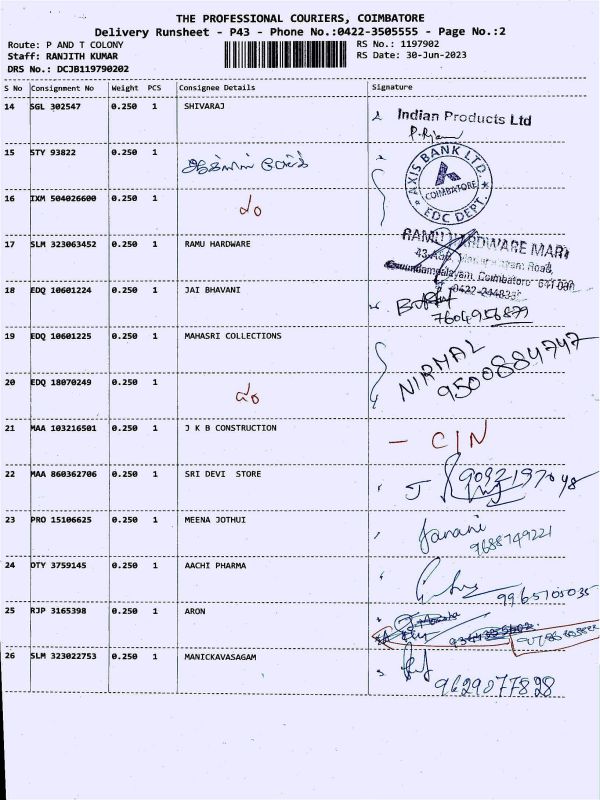 THE PROFESSIONAL COURIERS, COIMBATORE
Delivery Runsheet - P43 - Phone No.:0422-3505555 - Page No.:2
Route: P AND T COLONY RS No.: 1197902
Staff: RANJITH KUMAR RS Date: 30-Jun-2023
DRS No.: DCJB119790202
S No Consignment No Weight PCS Consignee Details Signature
14 SGL 302547 0.250 1 SHIVARAJ Indian Products Ltd
15 STY 93822 0.250 1
AXIS BANK LTD. COIMBATORE EDC DEPT.
16 IXM 504026600 0.250 1
17 SLM 323063452 0.250 1 RAMU HARDWARE RAMU HARDWARE MART
Road,
Coimbatore
18 EDQ 10601224 0.250 1 JAI BHAVANI
7604956879
19 EDQ 10601225 0.250 1 MAHASRI COLLECTIONS NIRMAL
9500884747
20 EDQ 18070249 0.250 1
21 MAA 103216501 0.250 1 J K B CONSTRUCTION - C/N
22 MAA 860362706 0.250 1 SRI DEVI STORE
23 PRO 15106625 0.250 1 MEENA JOTHUI Janani
9688749221
24 OTY 3759145 0.250 1 AACHI PHARMA
9965105035
25 RJP 3165398 0.250 1 ARON
26 SLM 323022753 0.250 1 MANICKAVASAGAM
9629077828